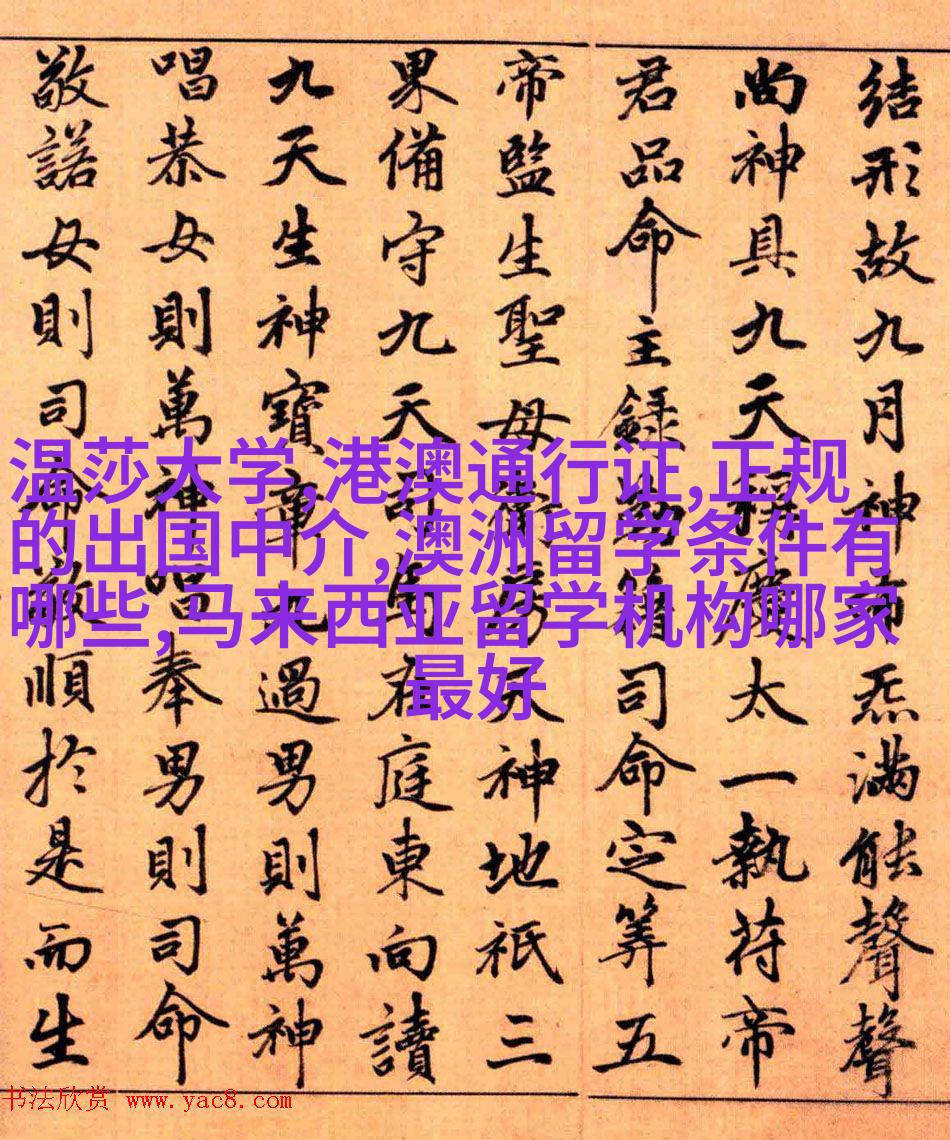 結形故九月神布炁滿能聲聲
尚神具九天稱慶太一執苻帝
君品命主録勒籍司命定筭五
帝監生聖母衛房天神地祇三
果備守九天司馬在庭東向讀
九天生神寶章九過男則萬神
唱恭女則萬神唱奉男則司命
敬諾女則司命敬順於是而生
温莎大学,港澳通行证,正规
的出国中介,澳洲留学条件有
哪些,马来西亚留学机构哪家
最好
书法欣赏 www.yac8.com